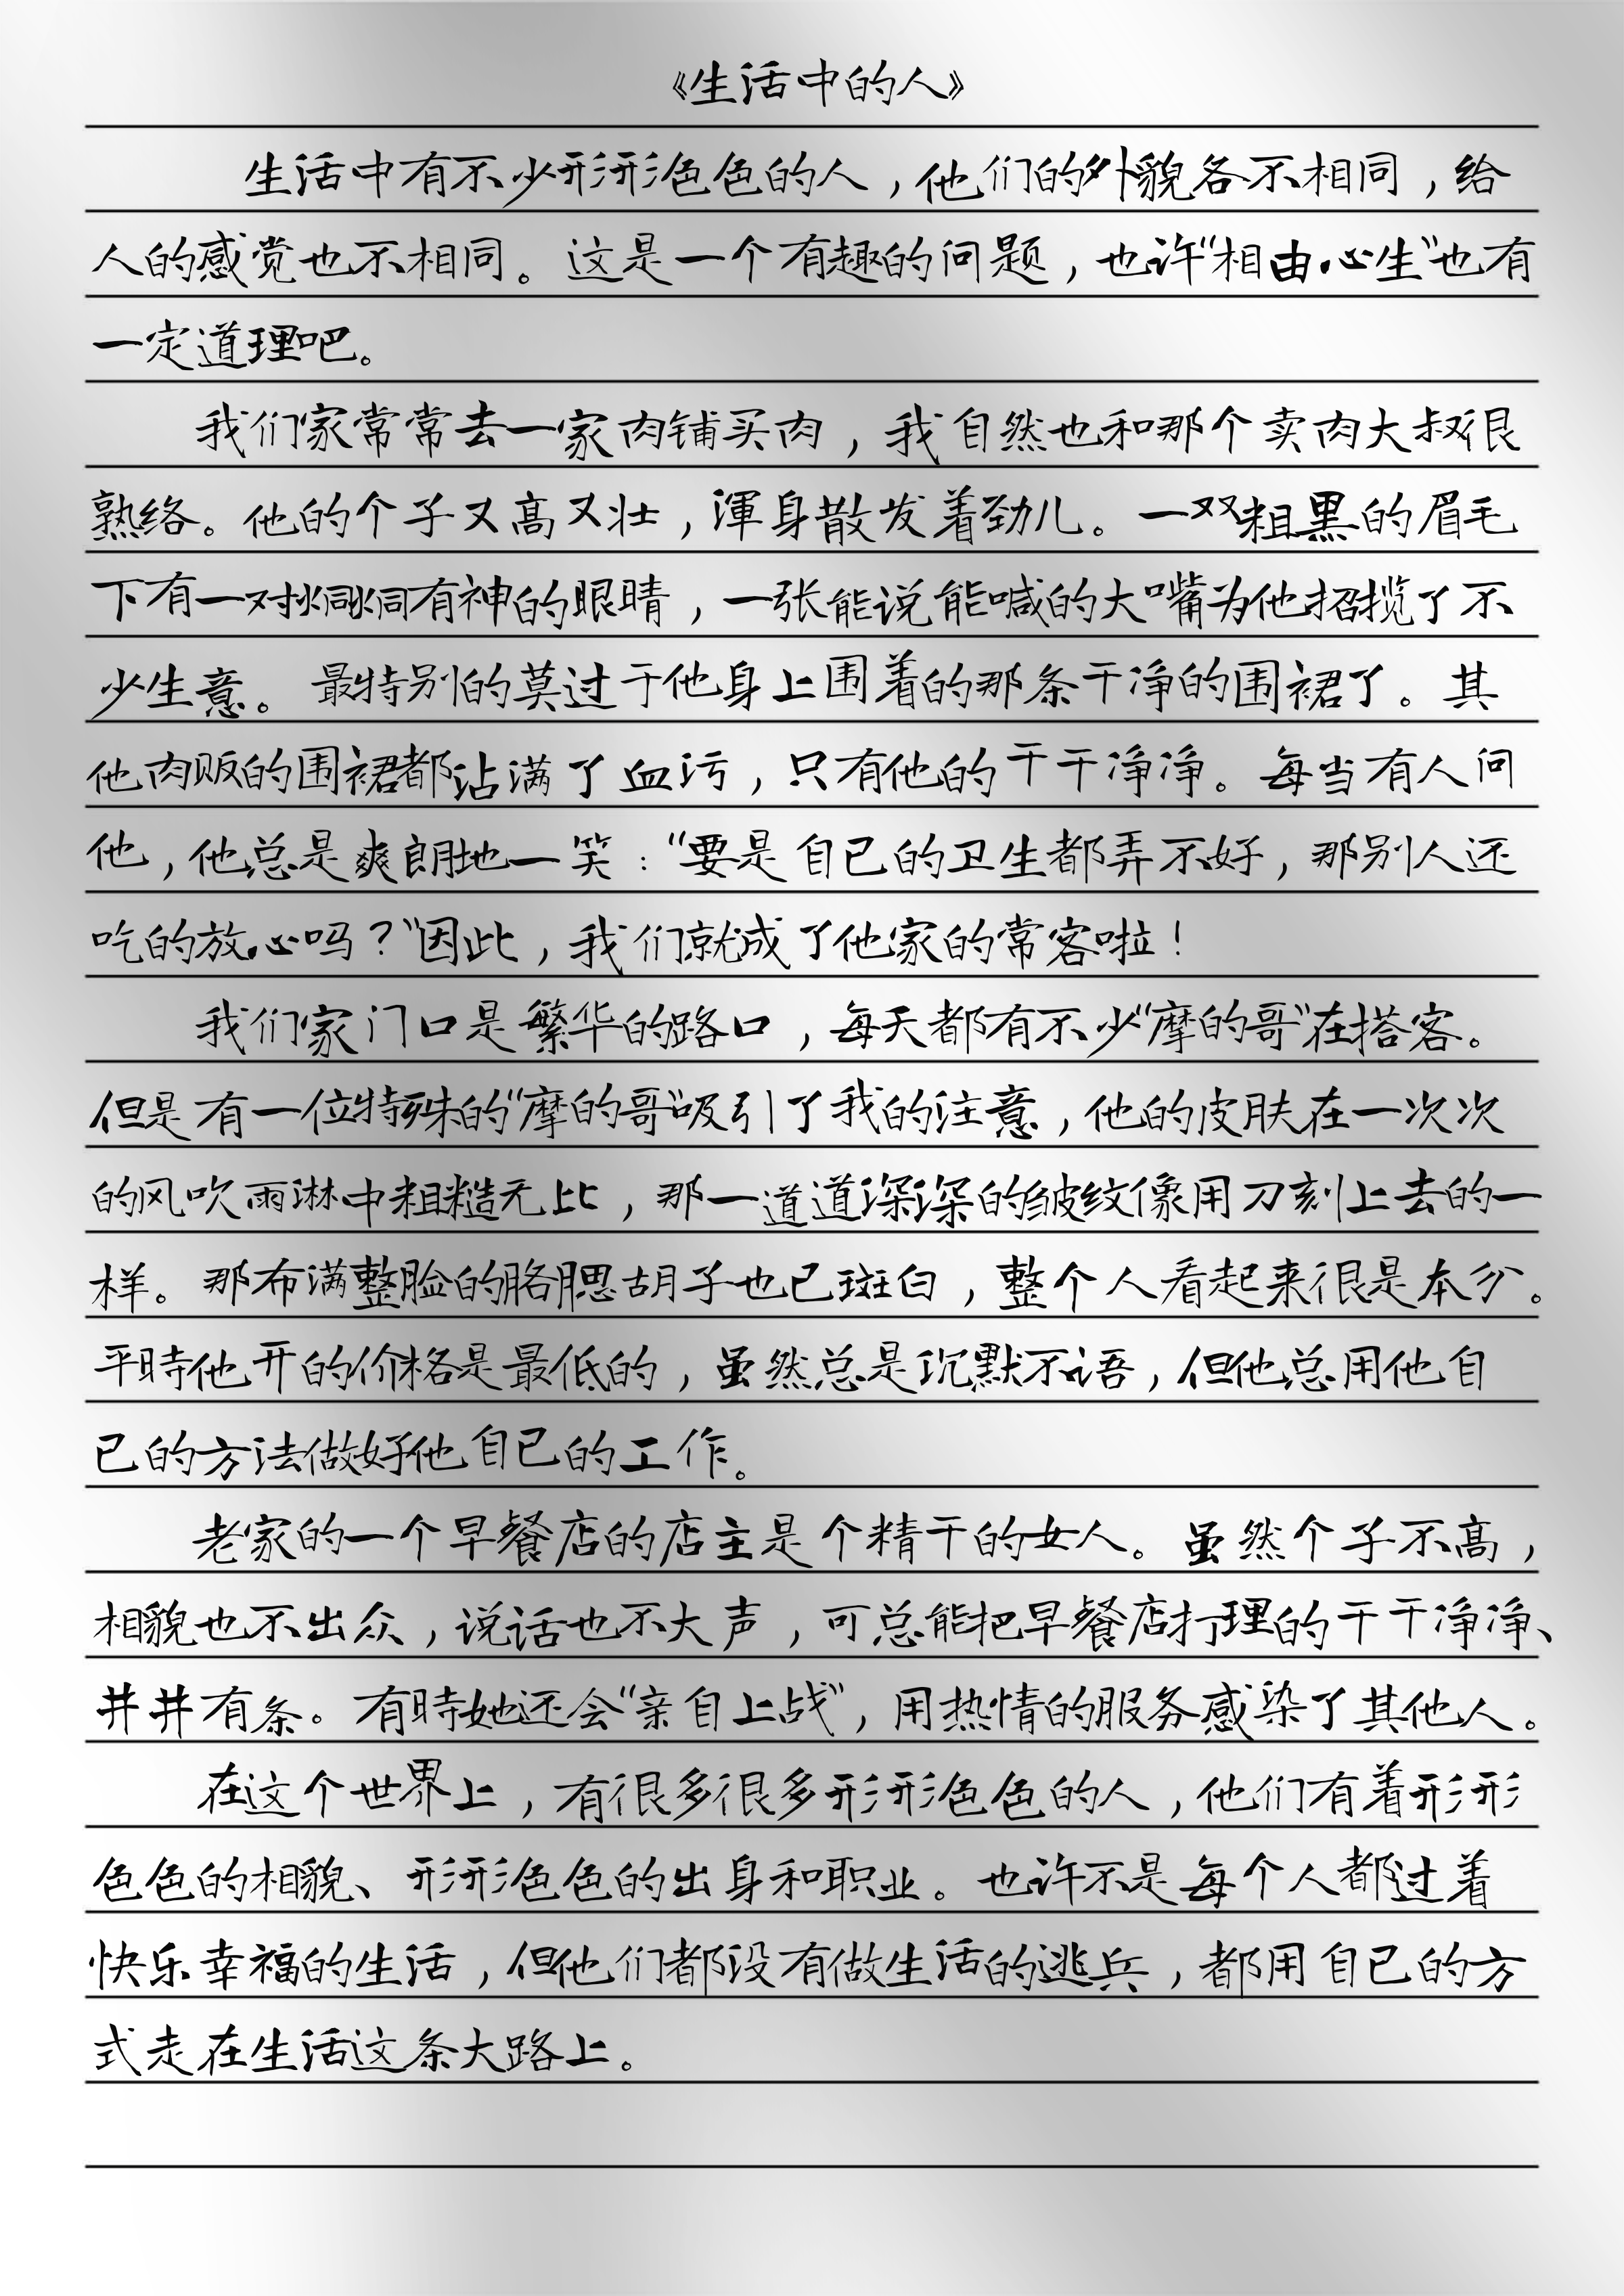 《生活中的人》
生活中有不少形形色色的人，他们的外貌各不相同，给
人的感觉也不相同。这是一个有趣的问题，也许“相由心生”也有
一定道理吧。
我们家常常去一家肉铺买肉，我自然也和那个卖肉大叔很
熟络。他的个子又高又壮，渾身散发着劲儿。一双粗黑的眉毛
下有一对炯炯有神的眼睛，一张能说能喊的大嘴为他招揽了不
少生意。最特别的莫过于他身上围着的那条干净的围裙了。其
他肉贩的围裙都沾满了血污，只有他的干干净净。每当有人问
他，他总是爽朗地一笑：“要是自己的卫生都弄不好，那别人还
吃的放心吗？”因此，我们就成了他家的常客啦！
我们家门口是繁华的路口，每天都有不少“摩的哥”在搭客。
但是有一位特殊的“摩的哥”吸引了我的注意，他的皮肤在一次次
的风吹雨淋中粗糙无比，那一道道深深的皱纹像用刀刻上去的一
样。那布满整脸的胳腮胡子也已斑白，整个人看起来很是本分。
平時他开的价格是最低的，虽然总是沉默不语，但他总用他自
己的方法做好他自己的工作。
老家的一个早餐店的店主是个精干的女人。虽然个子不高，
相貌也不出众，说话也不大声，可总能把早餐店打理的干干净净、
井井有条。有時她还会“亲自上战”，用热情的服务感染了其他人。
在这个世界上，有很多很多形形色色的人，他们有着形形
色色的相貌、形形色色的出身和职业。也许不是每个人都过着
快乐幸福的生活，但他们都没有做生活的逃兵，都用自己的方
式走在生活这条大路上。